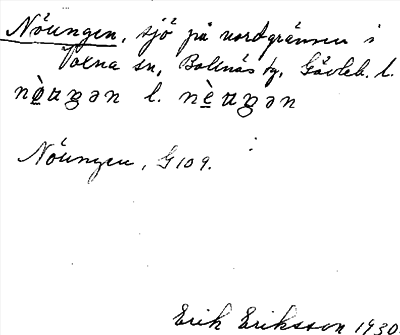 Nöungen, sjö på nordgränsen i
Voxna sn, Bollnäs tg, Gävleb. l.
l.
Nöungen, G 109.
Erik Eriksson 1930